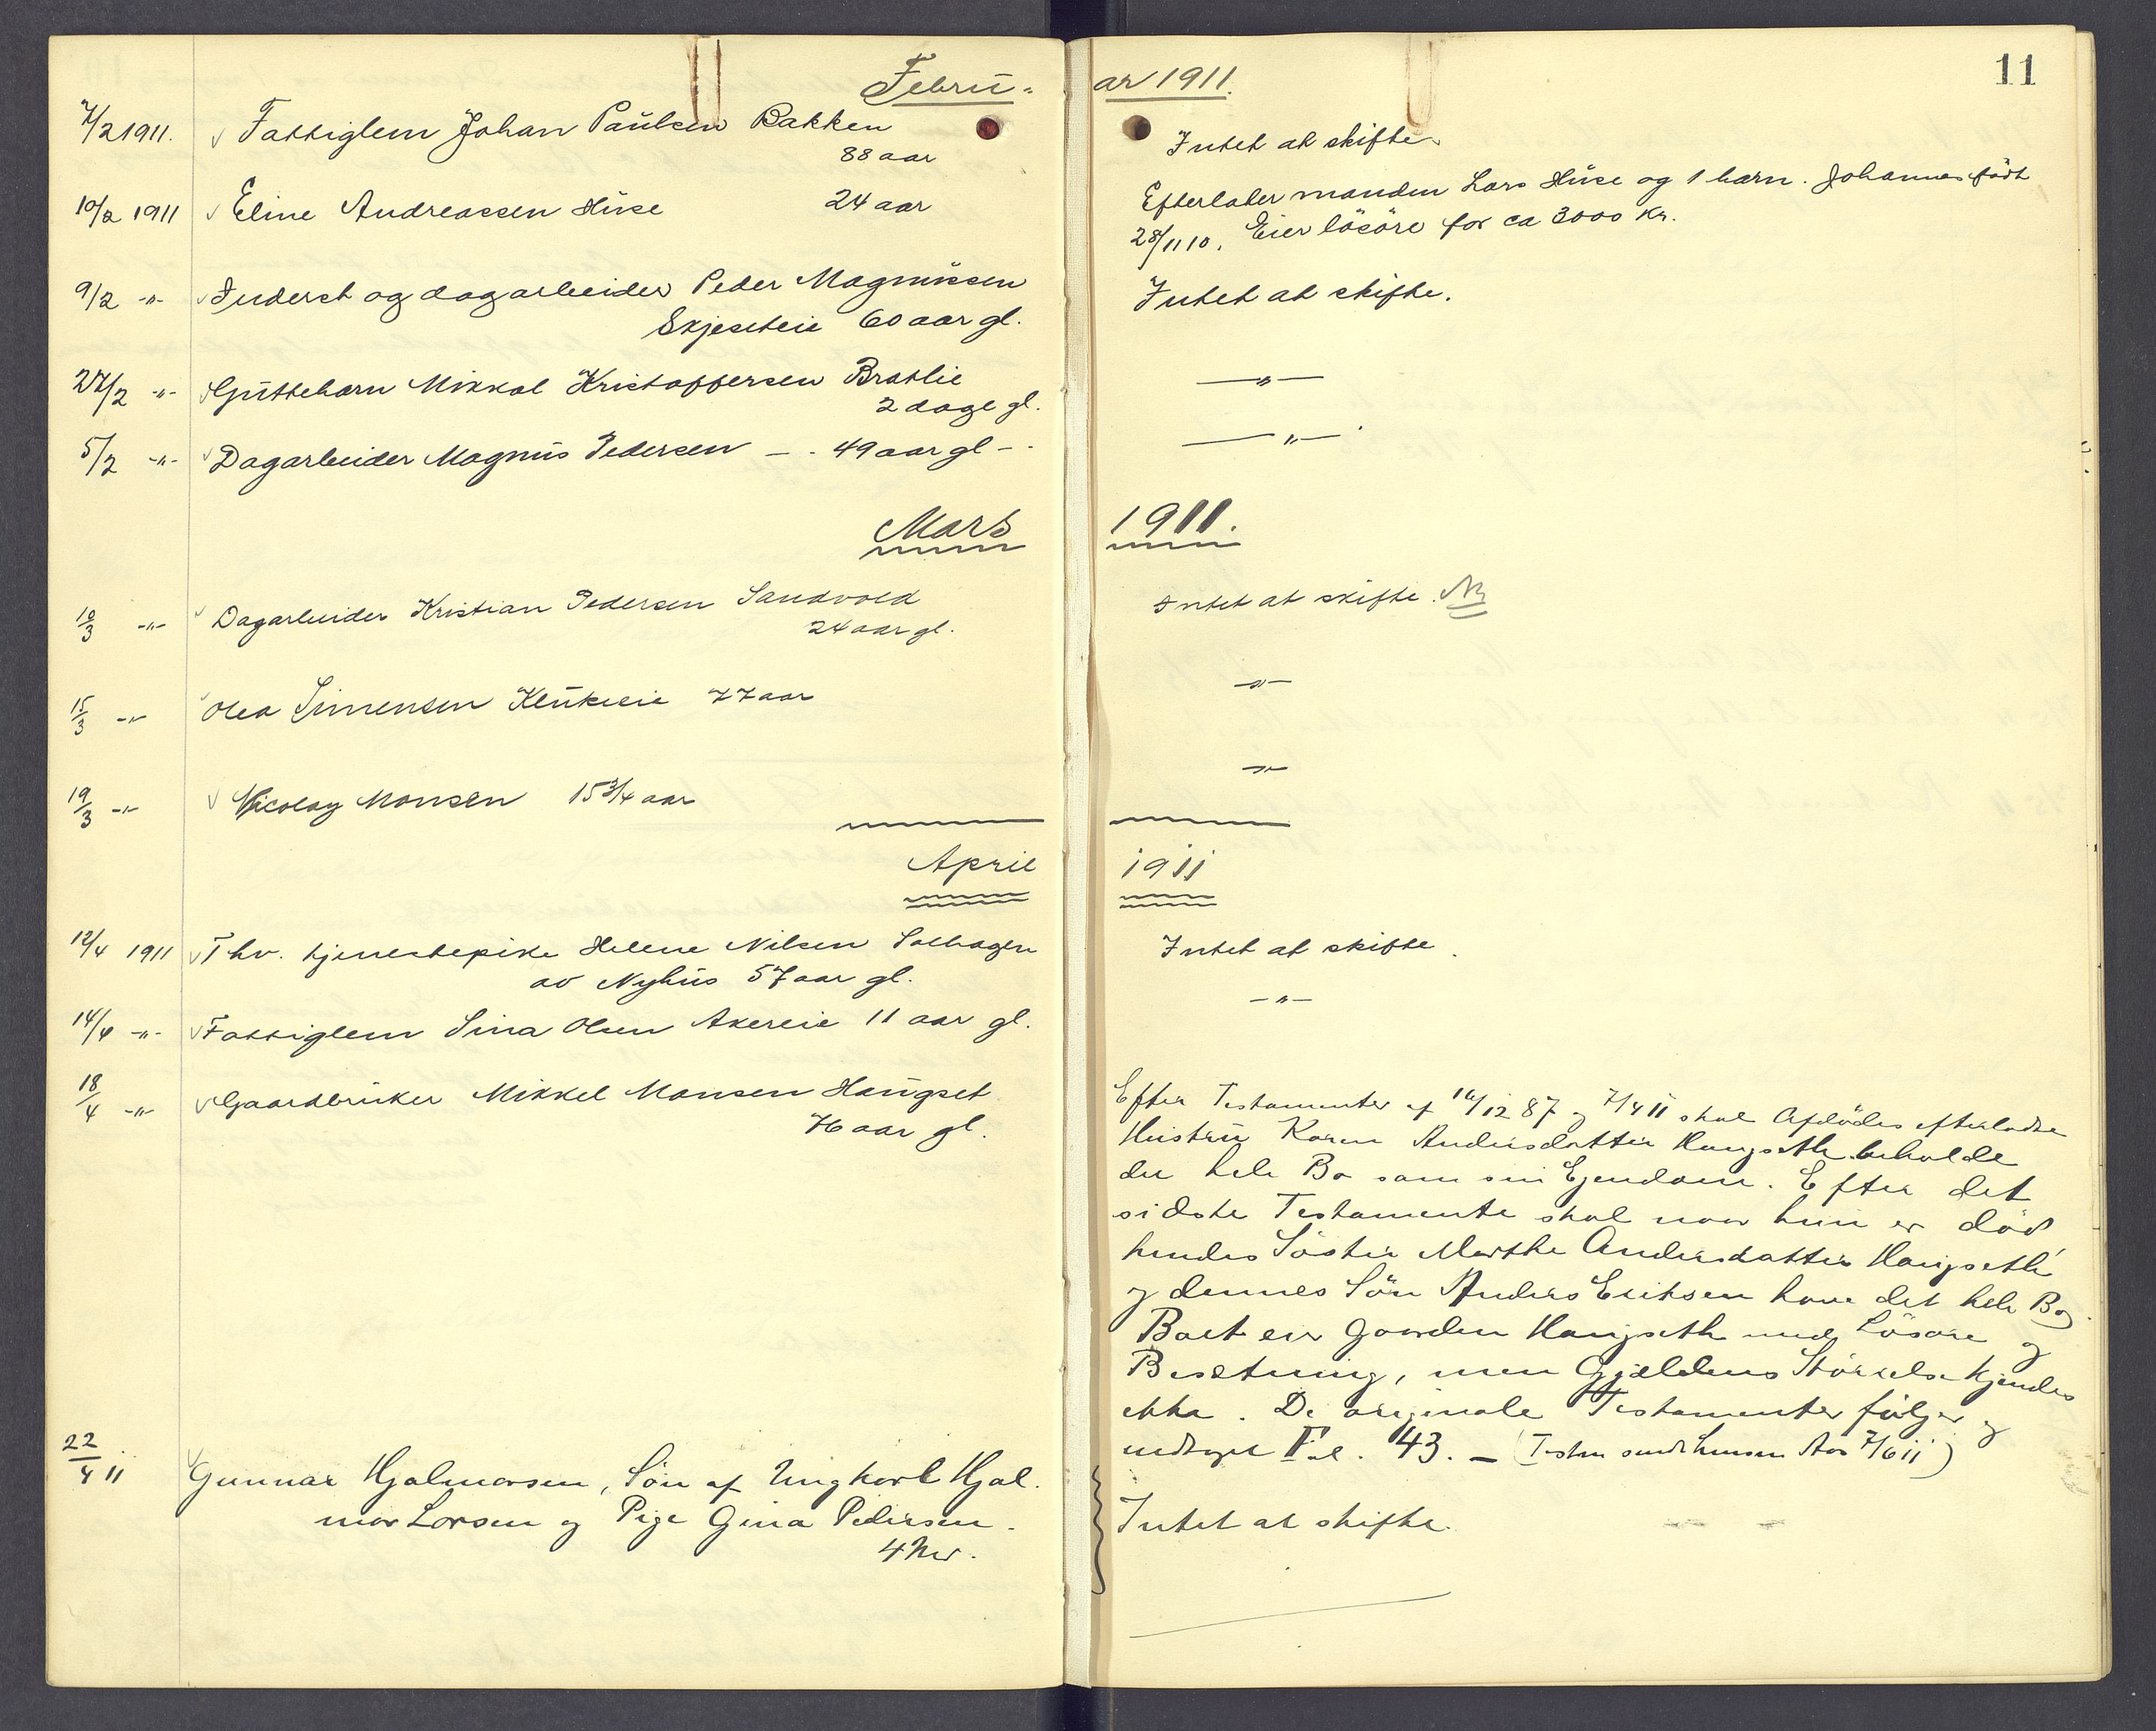 Febru-
ar 1911.
11
7/2 1911. Fattiglem Johan Paulsen Bakken
88 aar
Intet at skifte.
10/2 1911 Eline Andreassen Huse 24 aar
Efterlater manden Lars Huse og 1 barn. Johannes født
28/11 10. Eier løsøre for ca 3000 Kr.
9/2 -"- Inderst og dagarbeider Peder Magnussen
Skjeseteie 60 aar gl.
Intet at skifte.
27/2 -"- Guttebarn Mikkal Kristoffersen Bratlie
2 dage gl.
-"-
5/2 -"- Dagarbeider Magnus Pedersen - . 49 aar gl - .
-"-
Mars
1911.
10/3 -"- Dagarbeider Kristian Pedersen Sandvold
24 aar gl.
Intet at skifte.
15/3 -"- Olea Simensen Klukeie 77 aar
-"-
19/3 -"- Nicolay Monsen 15 3/4 aar
-"-
April
1911
12/4 1911 Fhv. tjenestepike Helene Nilsen Solhagen
av Nyhus 57 aar gl.
Intet at skifte.
14/4 -"- Fattiglem Sina Olsen Akereie 11 aar gl.
-"-
18/4 -"- Gaardbruker Mikkel Monsen Haugset
76 aar gl.
Efter Testamenter af 16/12 87 og 7/4 11 skal Afdødes efterladte
Hustru Karen Andersdatter Haugseth beholde
det hele Bo som sin Ejendom. Efter det
sidste Testamente skal naar hun er død,
hendes Søster Marthe Andersdatter Haugseth
og dennes Søn Anders Eriksen have det hele Bo.
Boet eier Gaarden Haugseth med Løsøre og
Besetning, men Gjældens Størrelse kjendes
ikke. De originale Testamenter følger og
43. -
22/4 11 Gunnar Hjalmarsen, Søn af Ungkarl Hjal-
mar Larsen og Pige Gina Pedersen.
Intet at skifte.